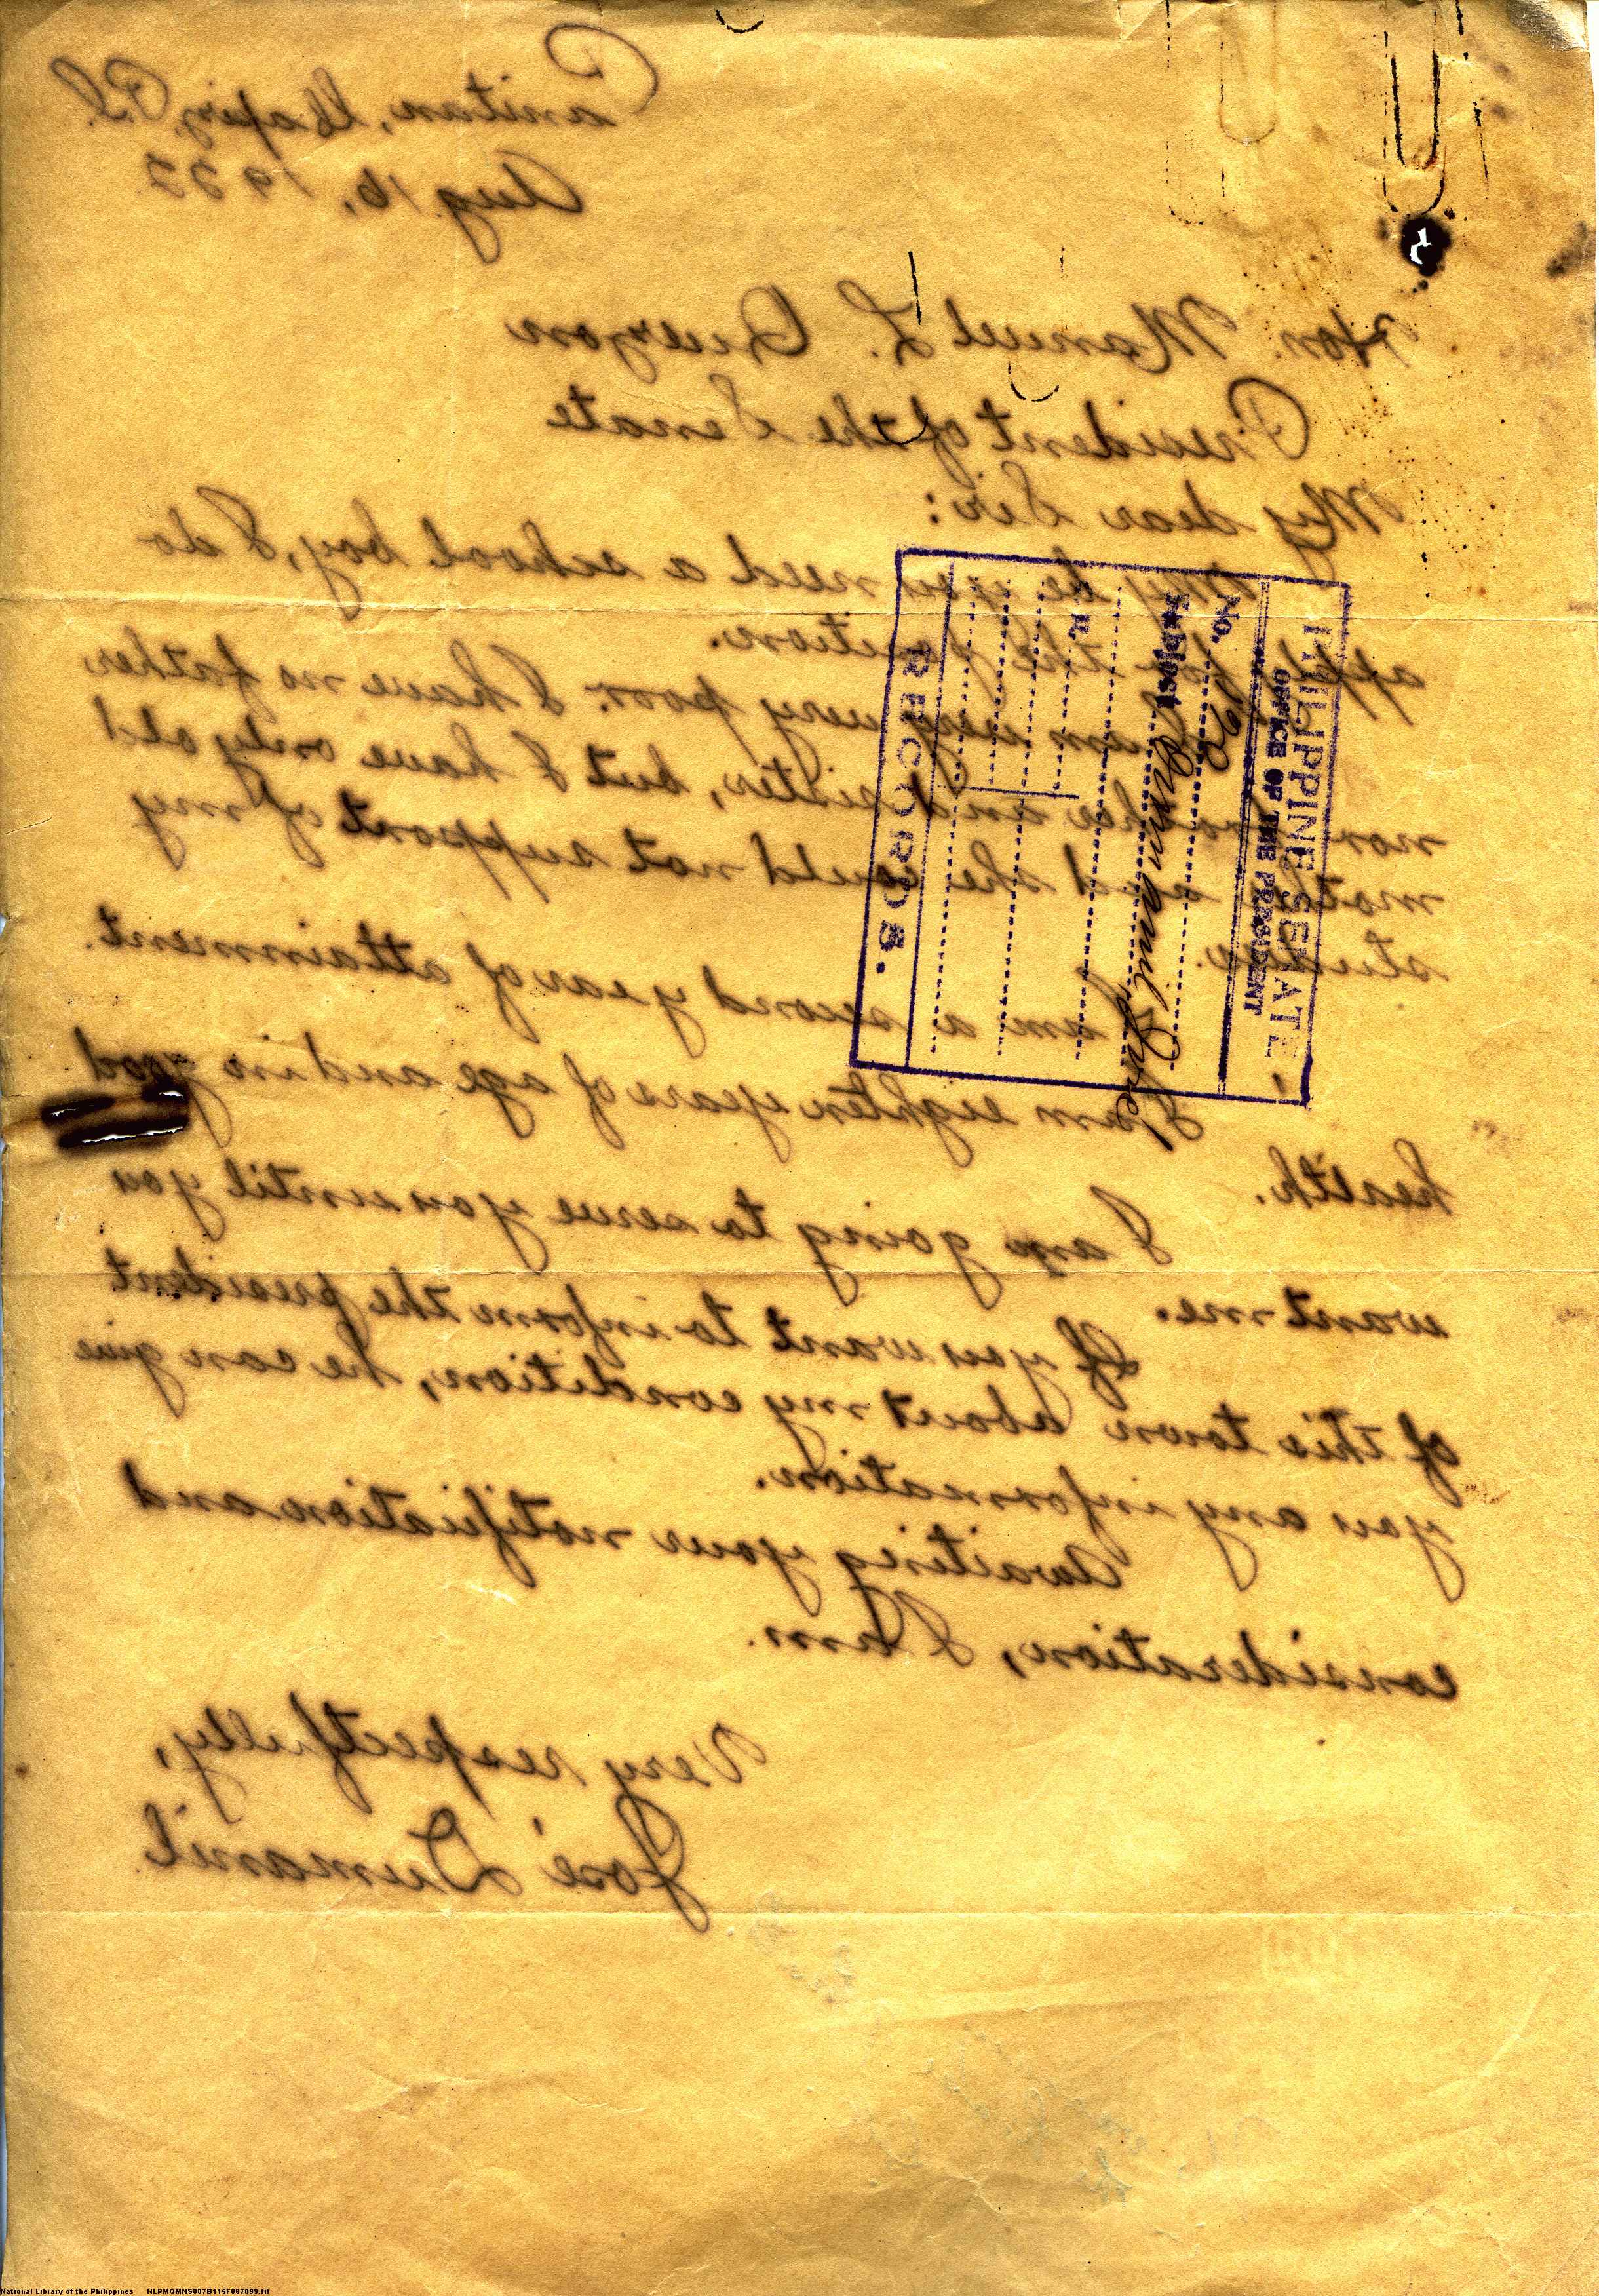 Panitan, Capiz, P.I.
Aug. 16, 1922
Hon. Manuel L. Quezon
President of the Senate
My dear Sir:
May be you need a school boy, I do
apply for the position.
I am very very poor. I have no father
nor brother and sister, but I have only old
mother and she could not support of my
studies.
I am a second year of attainment.
I am eighten years of age and in good
health.
I am going to serve you until you
want me.
If you want to inform the president
of this town about my condition, he can give
you any information.
Awaiting your notification and
consideration, I am.
Very respectfully,
José Dumanil
PHILIPPINE SENATE
OFFICE OF THE PRESIDENT
No.
Subject
Dumanil, Jose
RECORDS.
National Library of the Philippines NLPMQMNS007B115F087099.tif